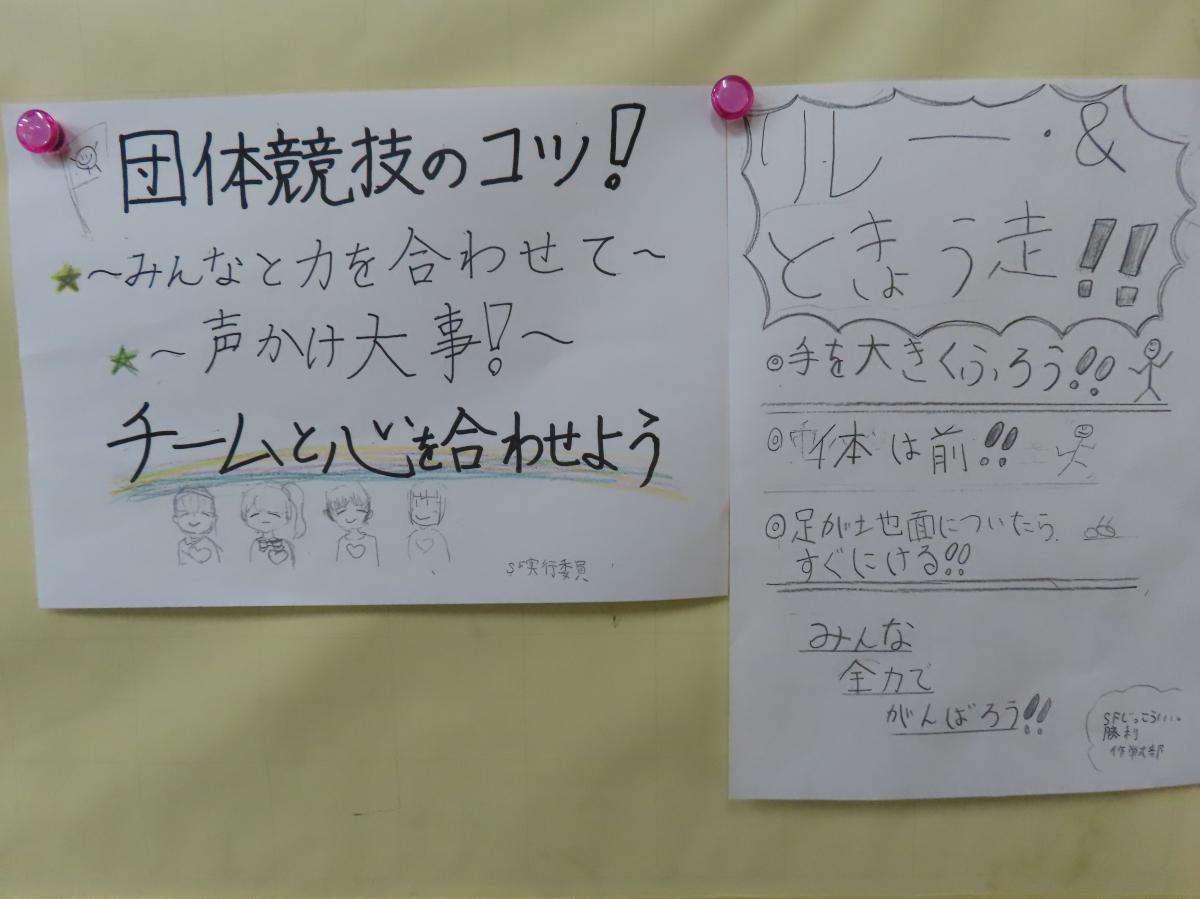 団体競技のコツ!
~みんなと力を合わせて~
~声かけ大事!~
チームと心を合わせよう
SF実行委員
リレー・&
ときょう走!!
◎手を大きくふろう!!
◎体は前!!
◎足が地面についたら
すぐにける!!
みんな
全力で
がんばろう!!
SFじっこうい..
勝利
作戦部